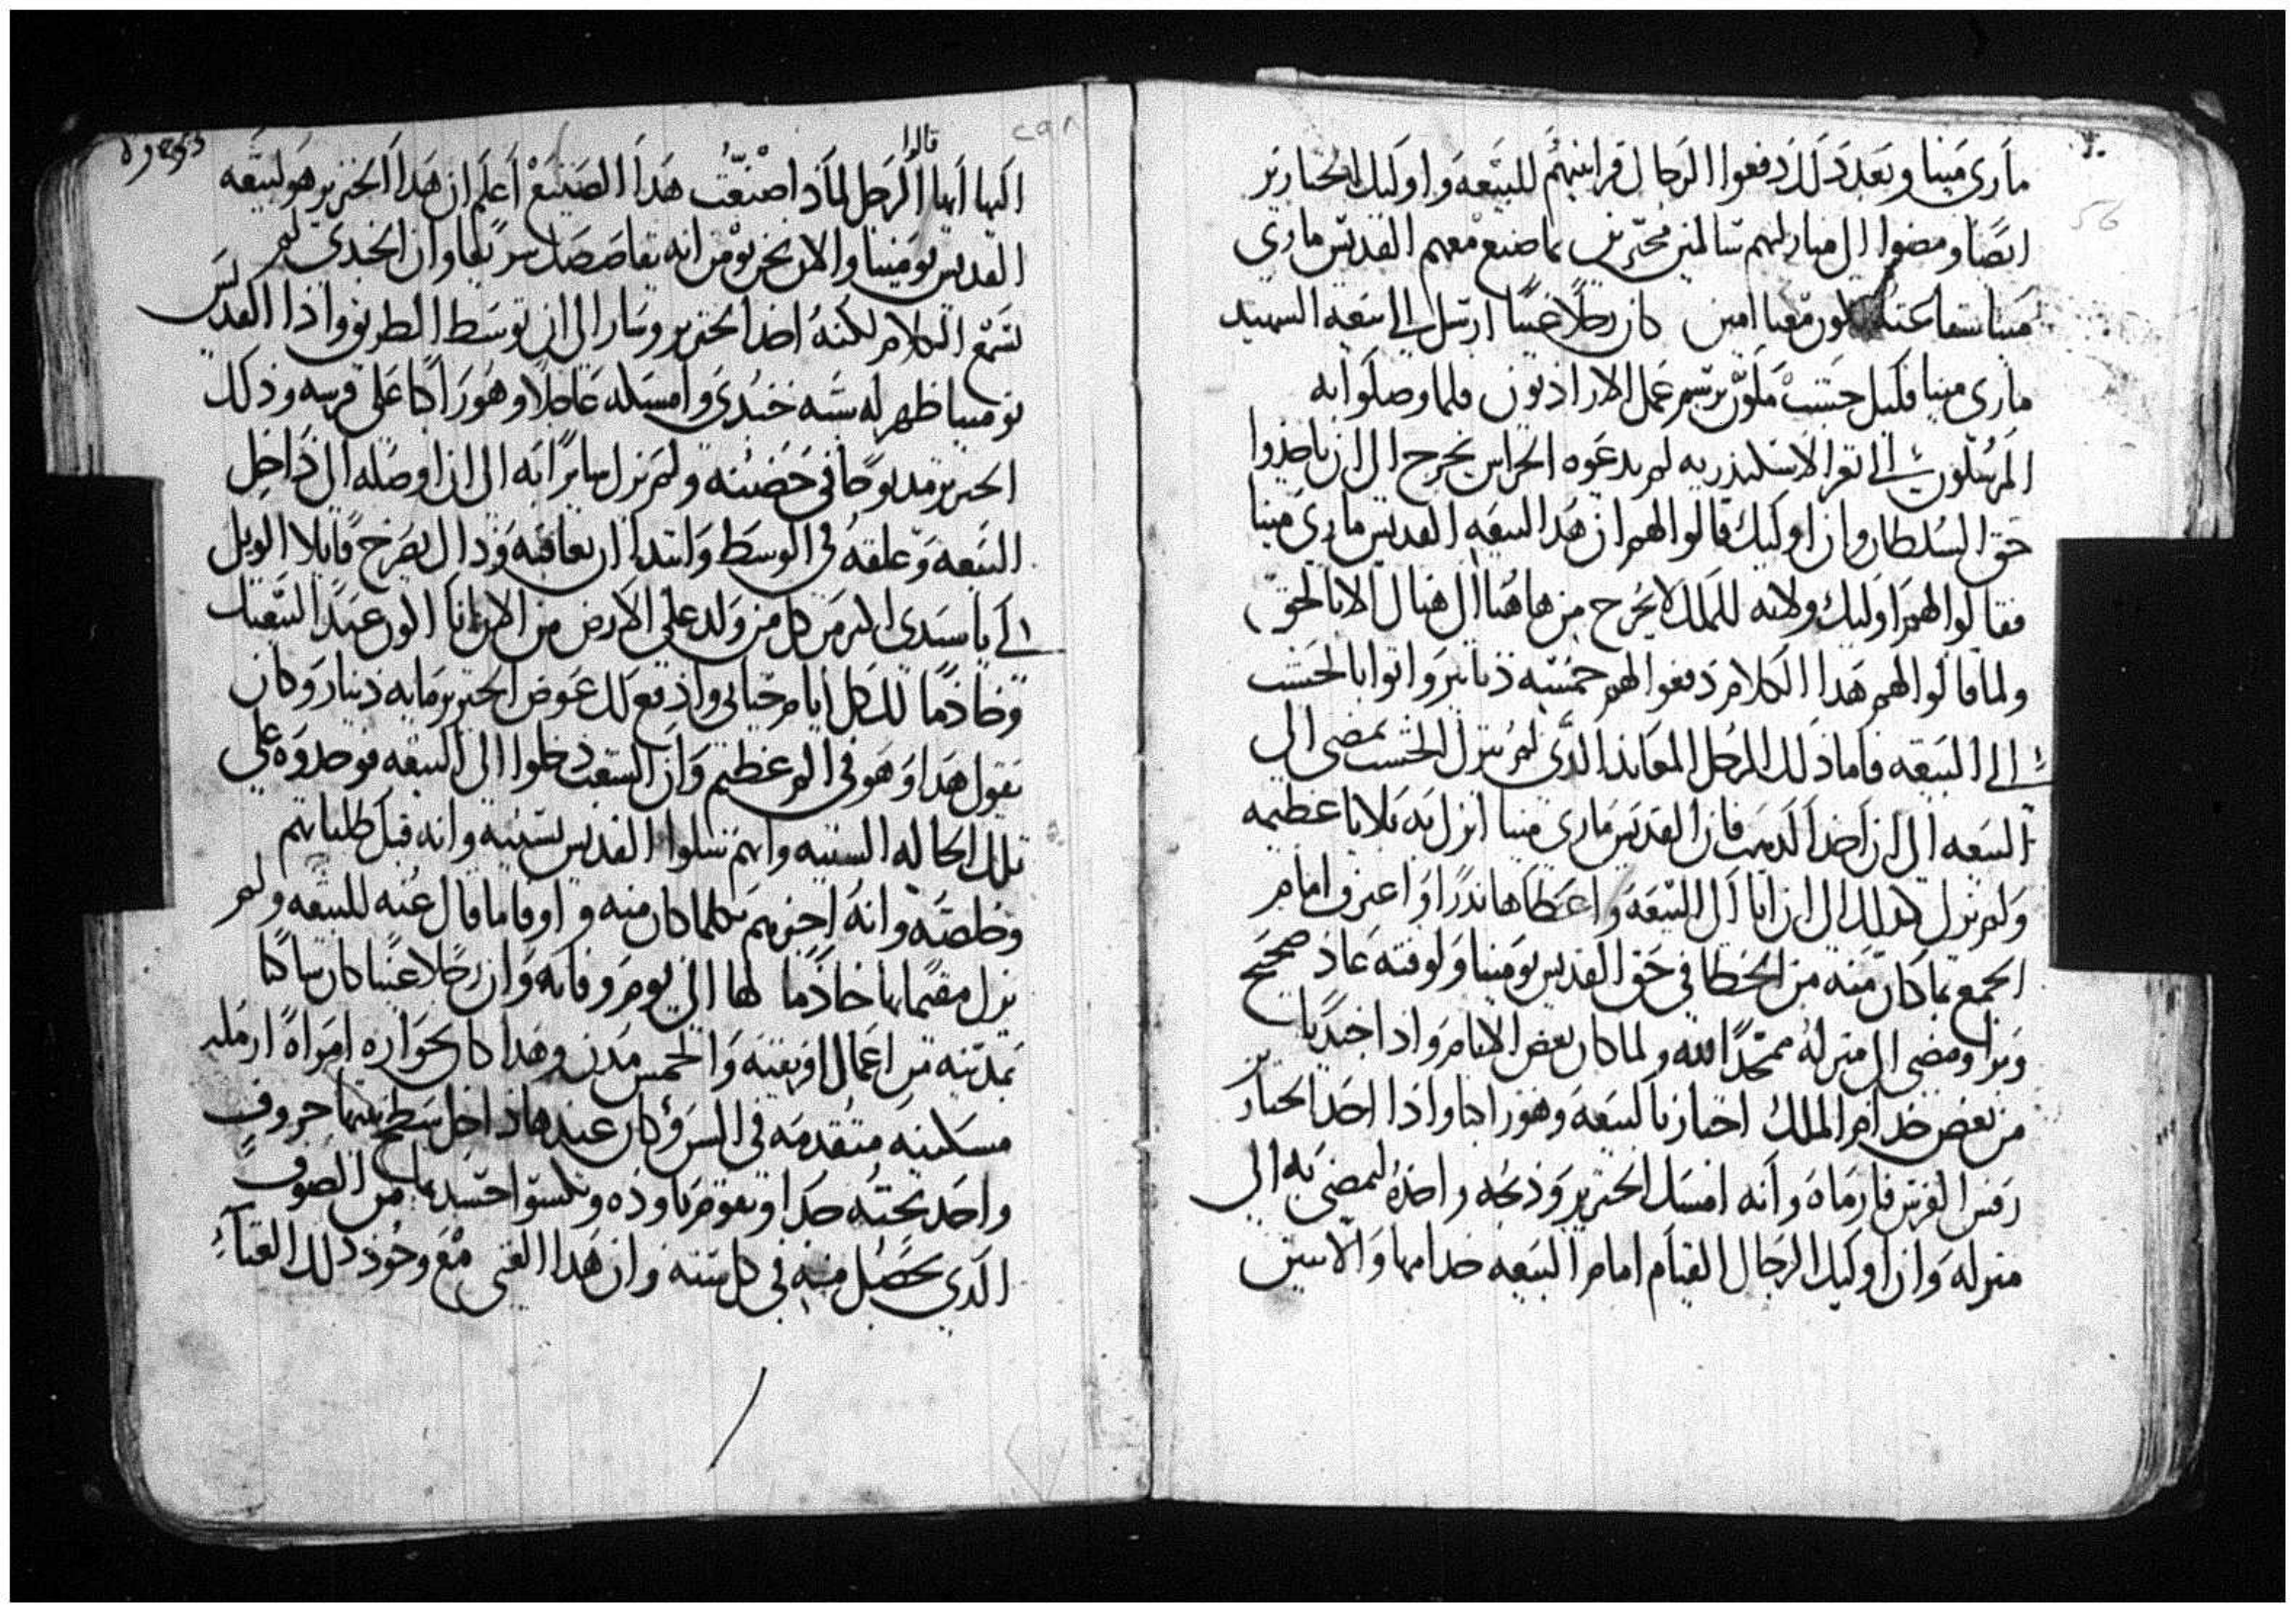 ماري مينا وبعد ذلك دفعوا الرجال قرابينهم للبيعه واوليك الخنازير
ايضا ومضوا الى منازلهم سالمين مخبرين بما صنع معهم القديس ماري
مينا شفاعته تكون معنا امين كان رجلا غنيا ارسل الى بيعه الشهيد
ماري مينا فكيل خشب ملون برسم عمل الاراديون فلما وصلوا به
المرسلون الى ثغر الاسكندريه لم يدعوه الحراس يخرج الى ان ياخذوا
حق السلطان وان اوليك قالوا لهم ان هدا لبيعه القديس ماري مينا
فقالوا لهم اوليك ولانه للملك لا يخرج من هاهنا الى هناك الا بالحق
ولما قالوا لهم هدا الكلام دفعوا لهم خمسه دنانير واتوا بالخشب
الى البيعه فاما ذلك الرجل المعاند الدي لم يترك الخشب يمضي الى
البيعه الى ان اخد الدهب فان القديس ماري مينا انزل به بلايا عظيمه
ولم يزل كدلك الى ان اتا الى البيعه واعطاها ندرا واعترف امام
الجمع بما كان منه من الخطا في حق القديس بومينا ولوقته عاد صحيح
وبرا ومضى الى منزله ممجدا الله ولما كان بعض الايام واذا جنديا
من بعض خدام الملك اجتاز بالبيعه وهو راكبا واذا احد الخنازير
رفس الفرس فارماه وانه امسك الخنزير وذبحه واخذه ليمضي به الى
منزله وان اوليك الرجال القيام امام البيعه خدامها والاسين
قالوا
اليها ايها الرجل لماذا صنعت هدا الصنيع اعلم ان هدا الخنزير هو لبيعه
القديس بومينا والان نحن نومن انه يقاصصك سريعا وان الجندي لم
يسمع الكلام لكنه اخذ الخنزير وسار الى ان توسط الطريق واذا القديس
بومينا ظهر له شبه جندي وامسكه عاجلا وهو راكبا على فرسه وذلك
الخنزير مدبوحا في حضنه ولم يزل سايرا به الى ان اوصله الى داخل
البيعه وعلقه في الوسط وابتدا ان يعاقبه وذاك يصرخ قايلا الويل
لي يا سيدي اكثر من كل من ولد على الارض من الان انا اكون عبدا لبيعتك
وخادما لك كل ايام حياتي وادفع لك عوض الخنزير مايه دينار وكان
يقول هدا وهو في الم عظيم وان الشعب دخلوا الى البيعه فوجدوه على
تلك الحاله السيه وانهم سلوا القديس بسببه وانه قبل طلباتهم
وخلصه وانه اخبرهم بكلما كان منه واوفا ما قال عنه للبيعه ولم
يزل مقيما بها خادما لها الى يوم وفاته وان رجلا غنيا كان ساكنا
بمدينه من اعمال افريقيه والخمس مدن وهدا كان بجواره امراه ارمله
مسكينه متقدمه في السن وكان عندها داخل سطح بيتها خروف
واحد تحبه جدا وتقوم باوده وتكسوا جسدها من الصوف
الدي يحصل منه في كل سنه وان هدا الغني مع وجود ذلك الغناء